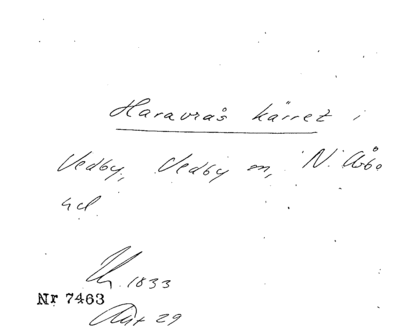 Haravrås kärret i
Vedby, Vedby sn, N. Åsbo
hd
1833
Nr 7463
Akt 29